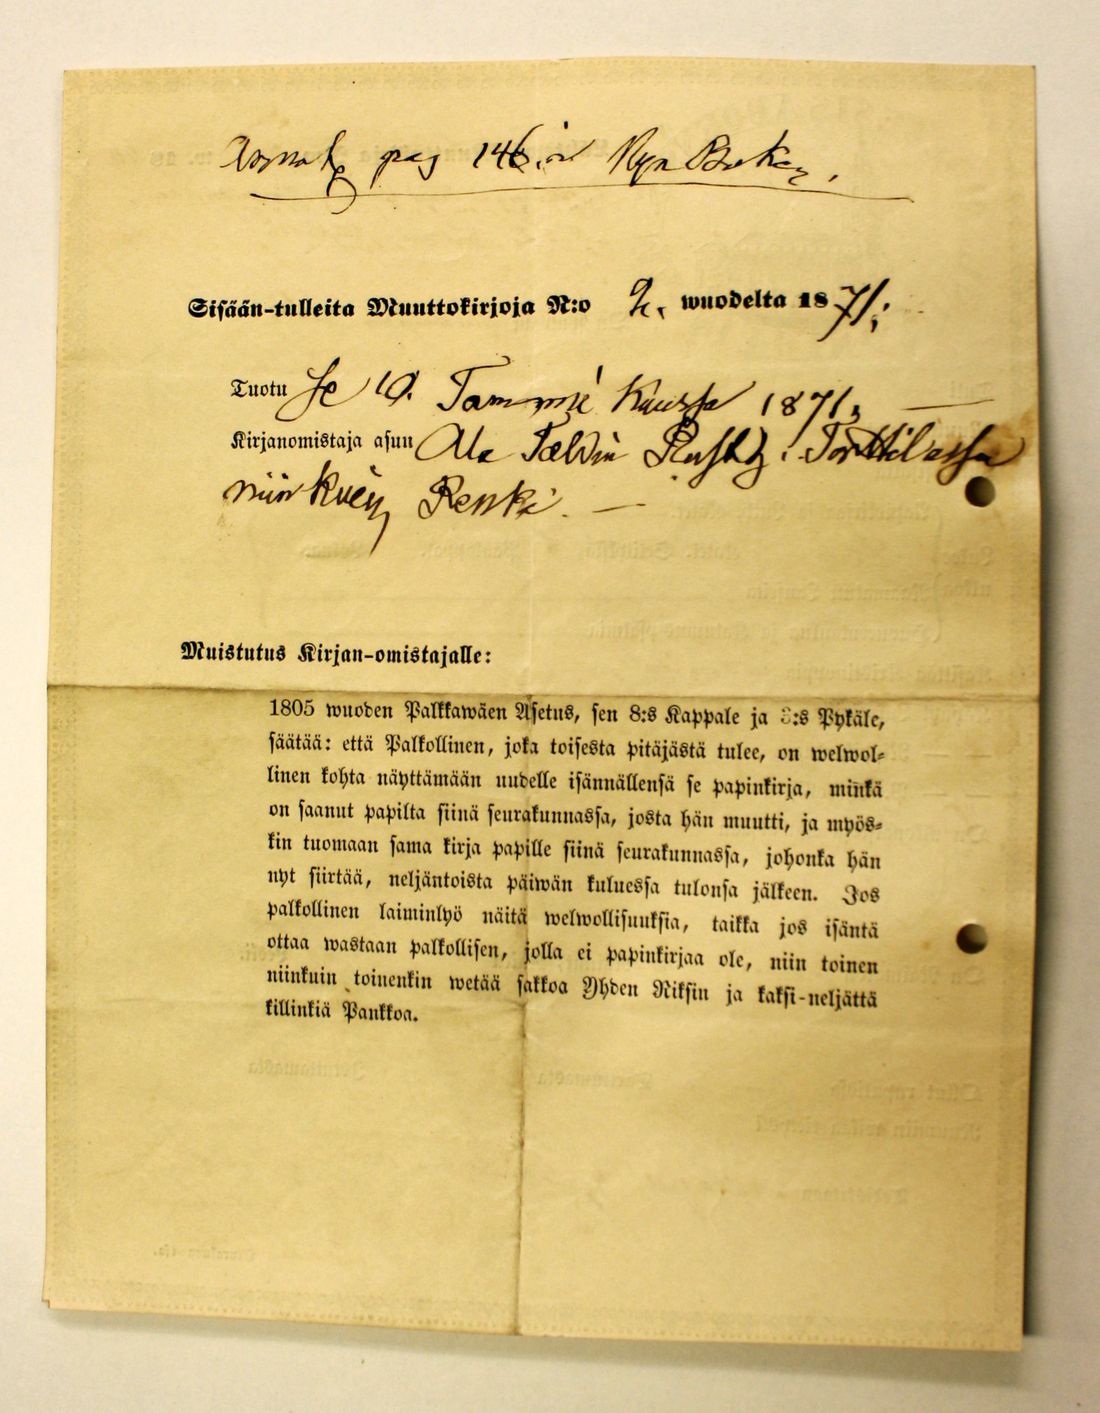 pag 146. i Nya Boken.
Sisään-tulleita Muuttokirjoja N:o 2. wuodelta 1871;
Tuotu se 10. Tammi Kuussa 1871,
Kirjanomistaja asuu Ala Torttilassa
niin kuin Renki. —
Muistutus Kirjan-omistajalle:
1805 wuoden Palkkawäen Asetus, sen 8:s Kappale ja 3:s Pykäle,
säätää: että Palkollinen, joka toisesta pitäjästä tulee, on welwol-
linen kohta näyttämään uudelle isännällensä se papinkirja, minkä
on saanut papilta siinä seurakunnassa, josta hän muutti, ja myös-
kin tuomaan sama kirja papille siinä seurakunnassa, johonka hän
nyt siirtää, neljäntoista päiwän kuluessa tulonsa jälkeen. Jos
palkollinen laiminlyö näitä welwollisuuksia, taikka jos isäntä
ottaa wastaan palkollisen, jolla ei papinkirjaa ole, niin toinen
niinkuin toinenkin wetää sakkoa Yhden Riksin ja kaksi-neljättä
killinkiä Pankkoa.